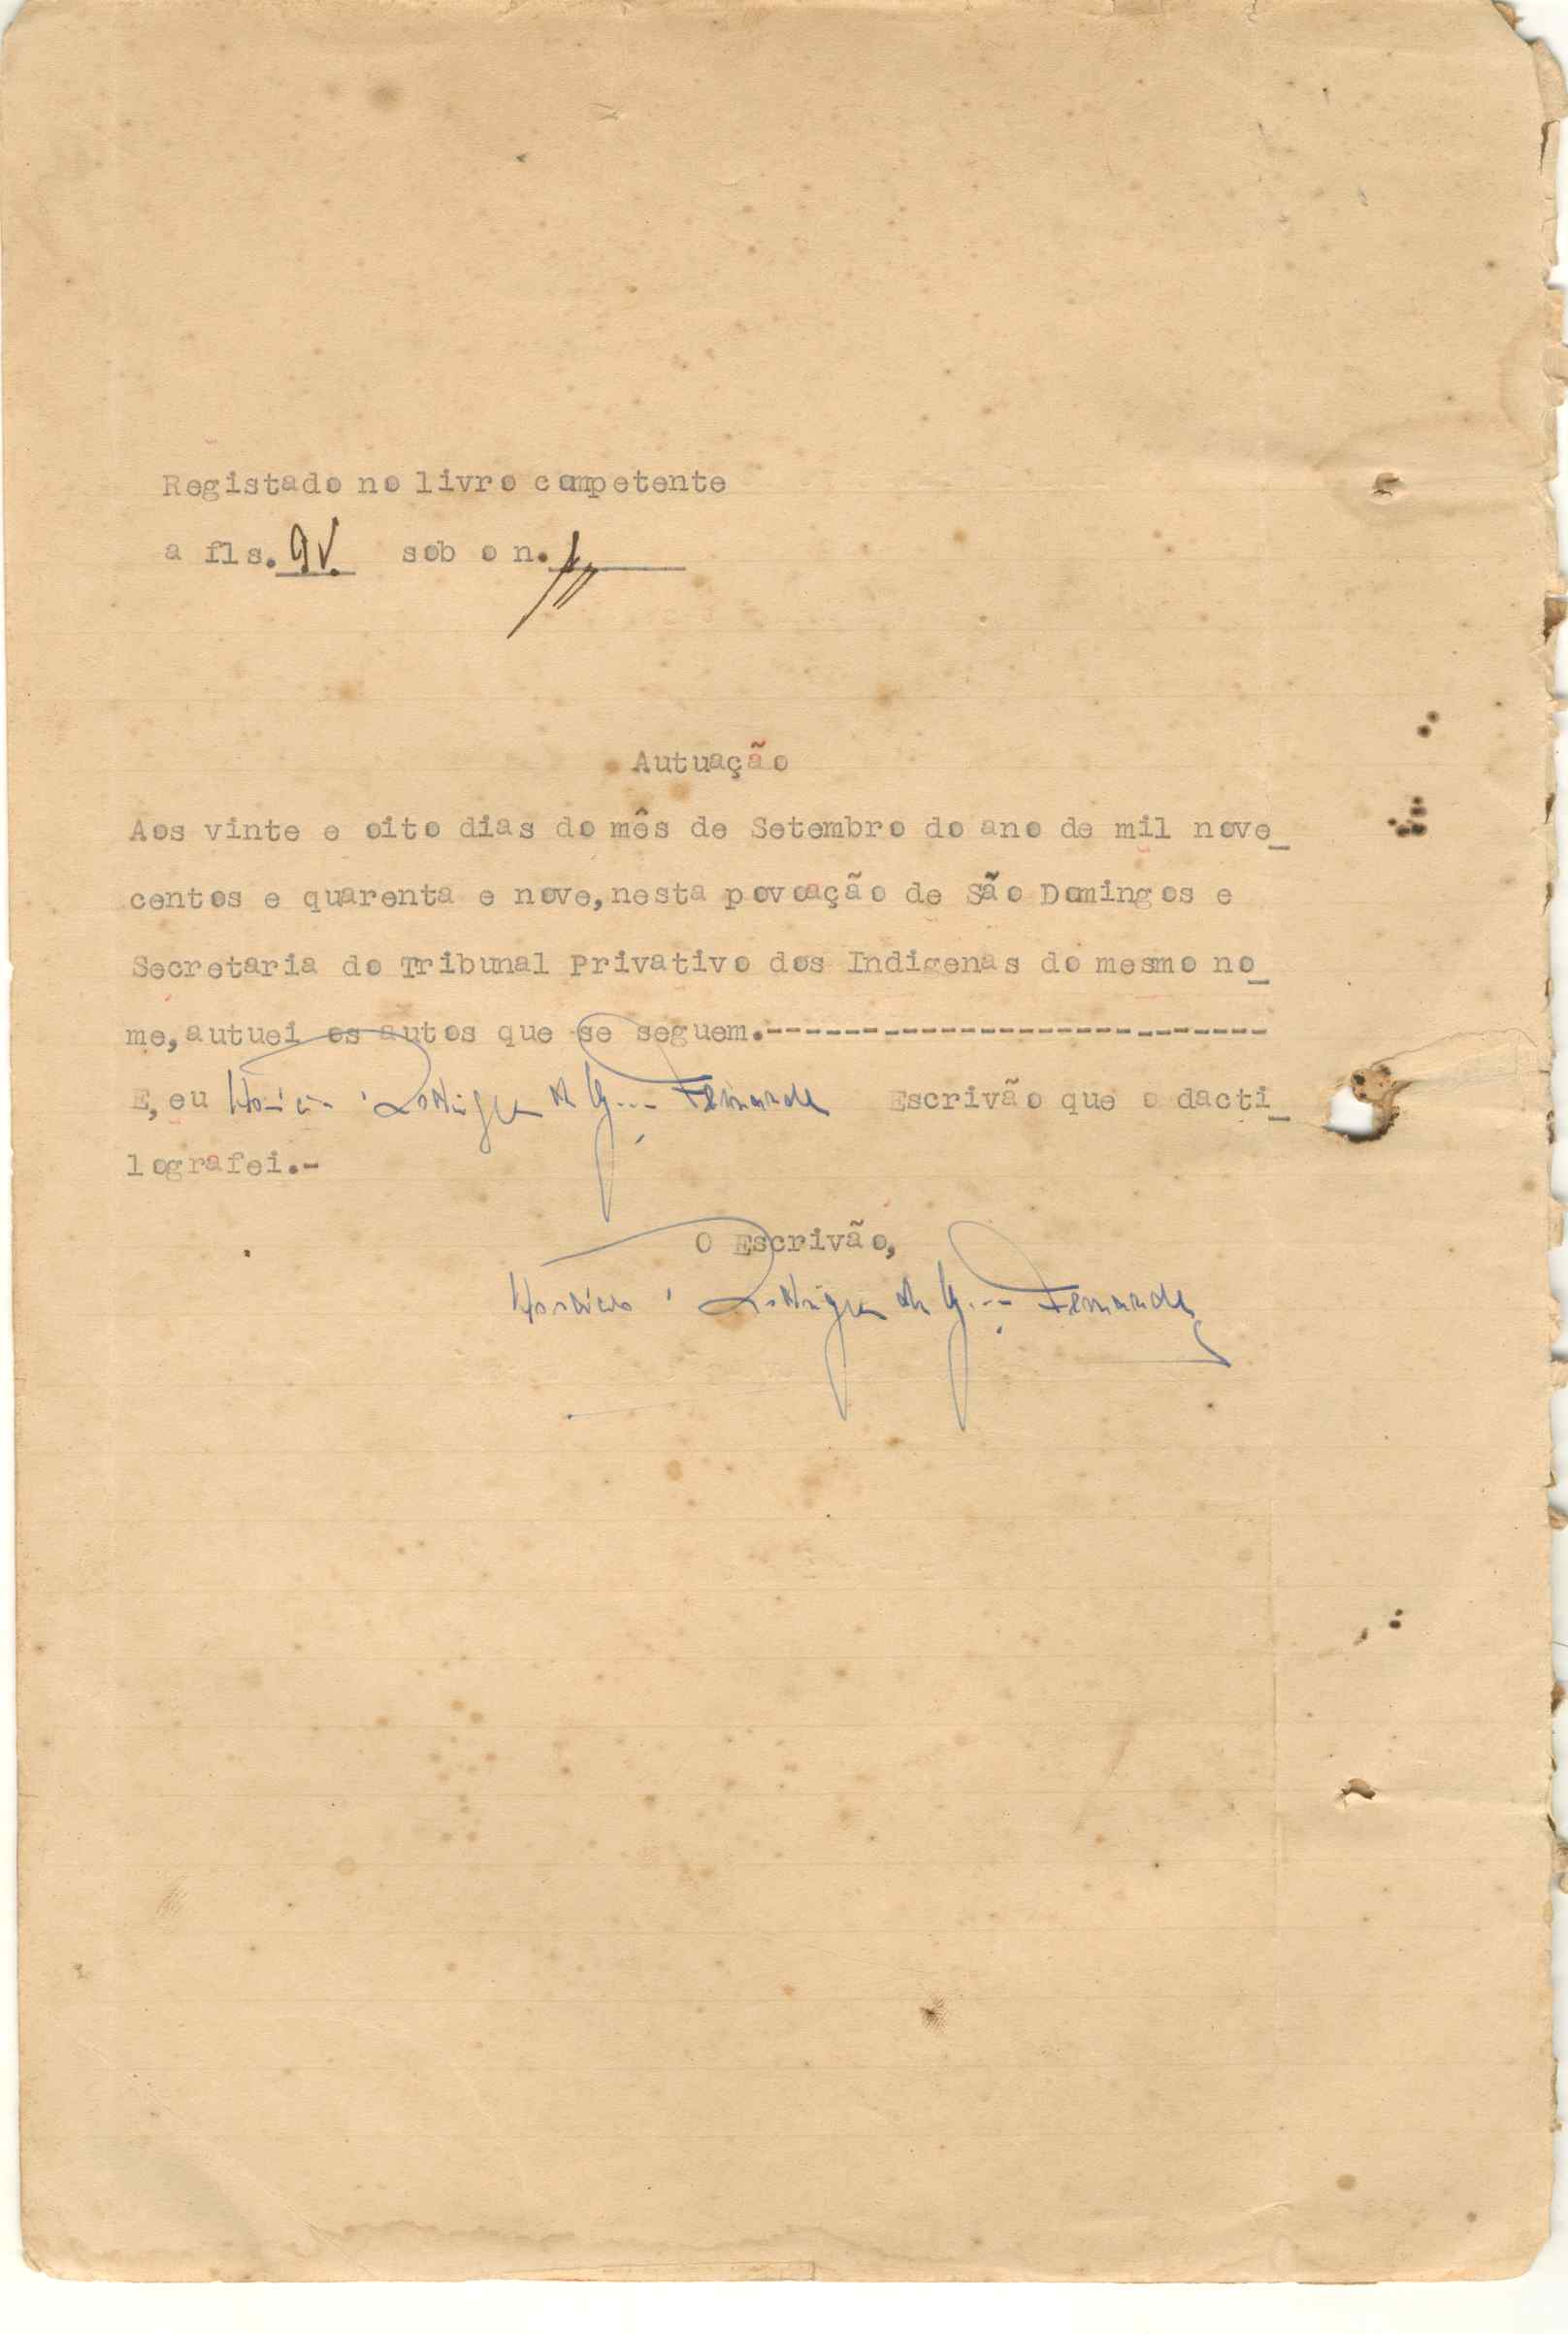 Registado no livro competente
a fls. 9V. sob o n.
Autuação
Aos vinte e oito dias do mês de Setembro do ano de mil nove_
centos e quarenta e nove,nesta povoação de São Domingos e
Secretaria do Tribunal Privativo dos Indigenas do mesmo no_
me,autuei os autos que se seguem.--------------------------
E,eu Rodrigues Fernandes Escrivão que o dacti_
lografei.-
O Escrivão,
Rodrigues Fernandes